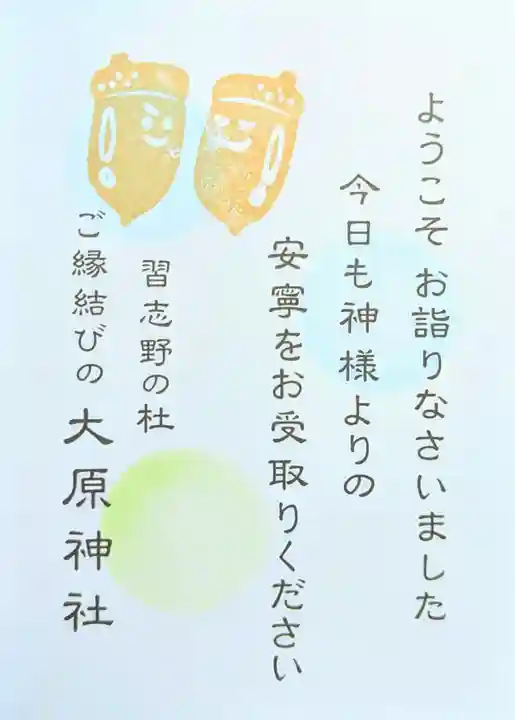 ようこそ お詣りなさいました
今日も神様よりの
安寧をお受取りください
習志野の杜
ご縁結びの 大原神社